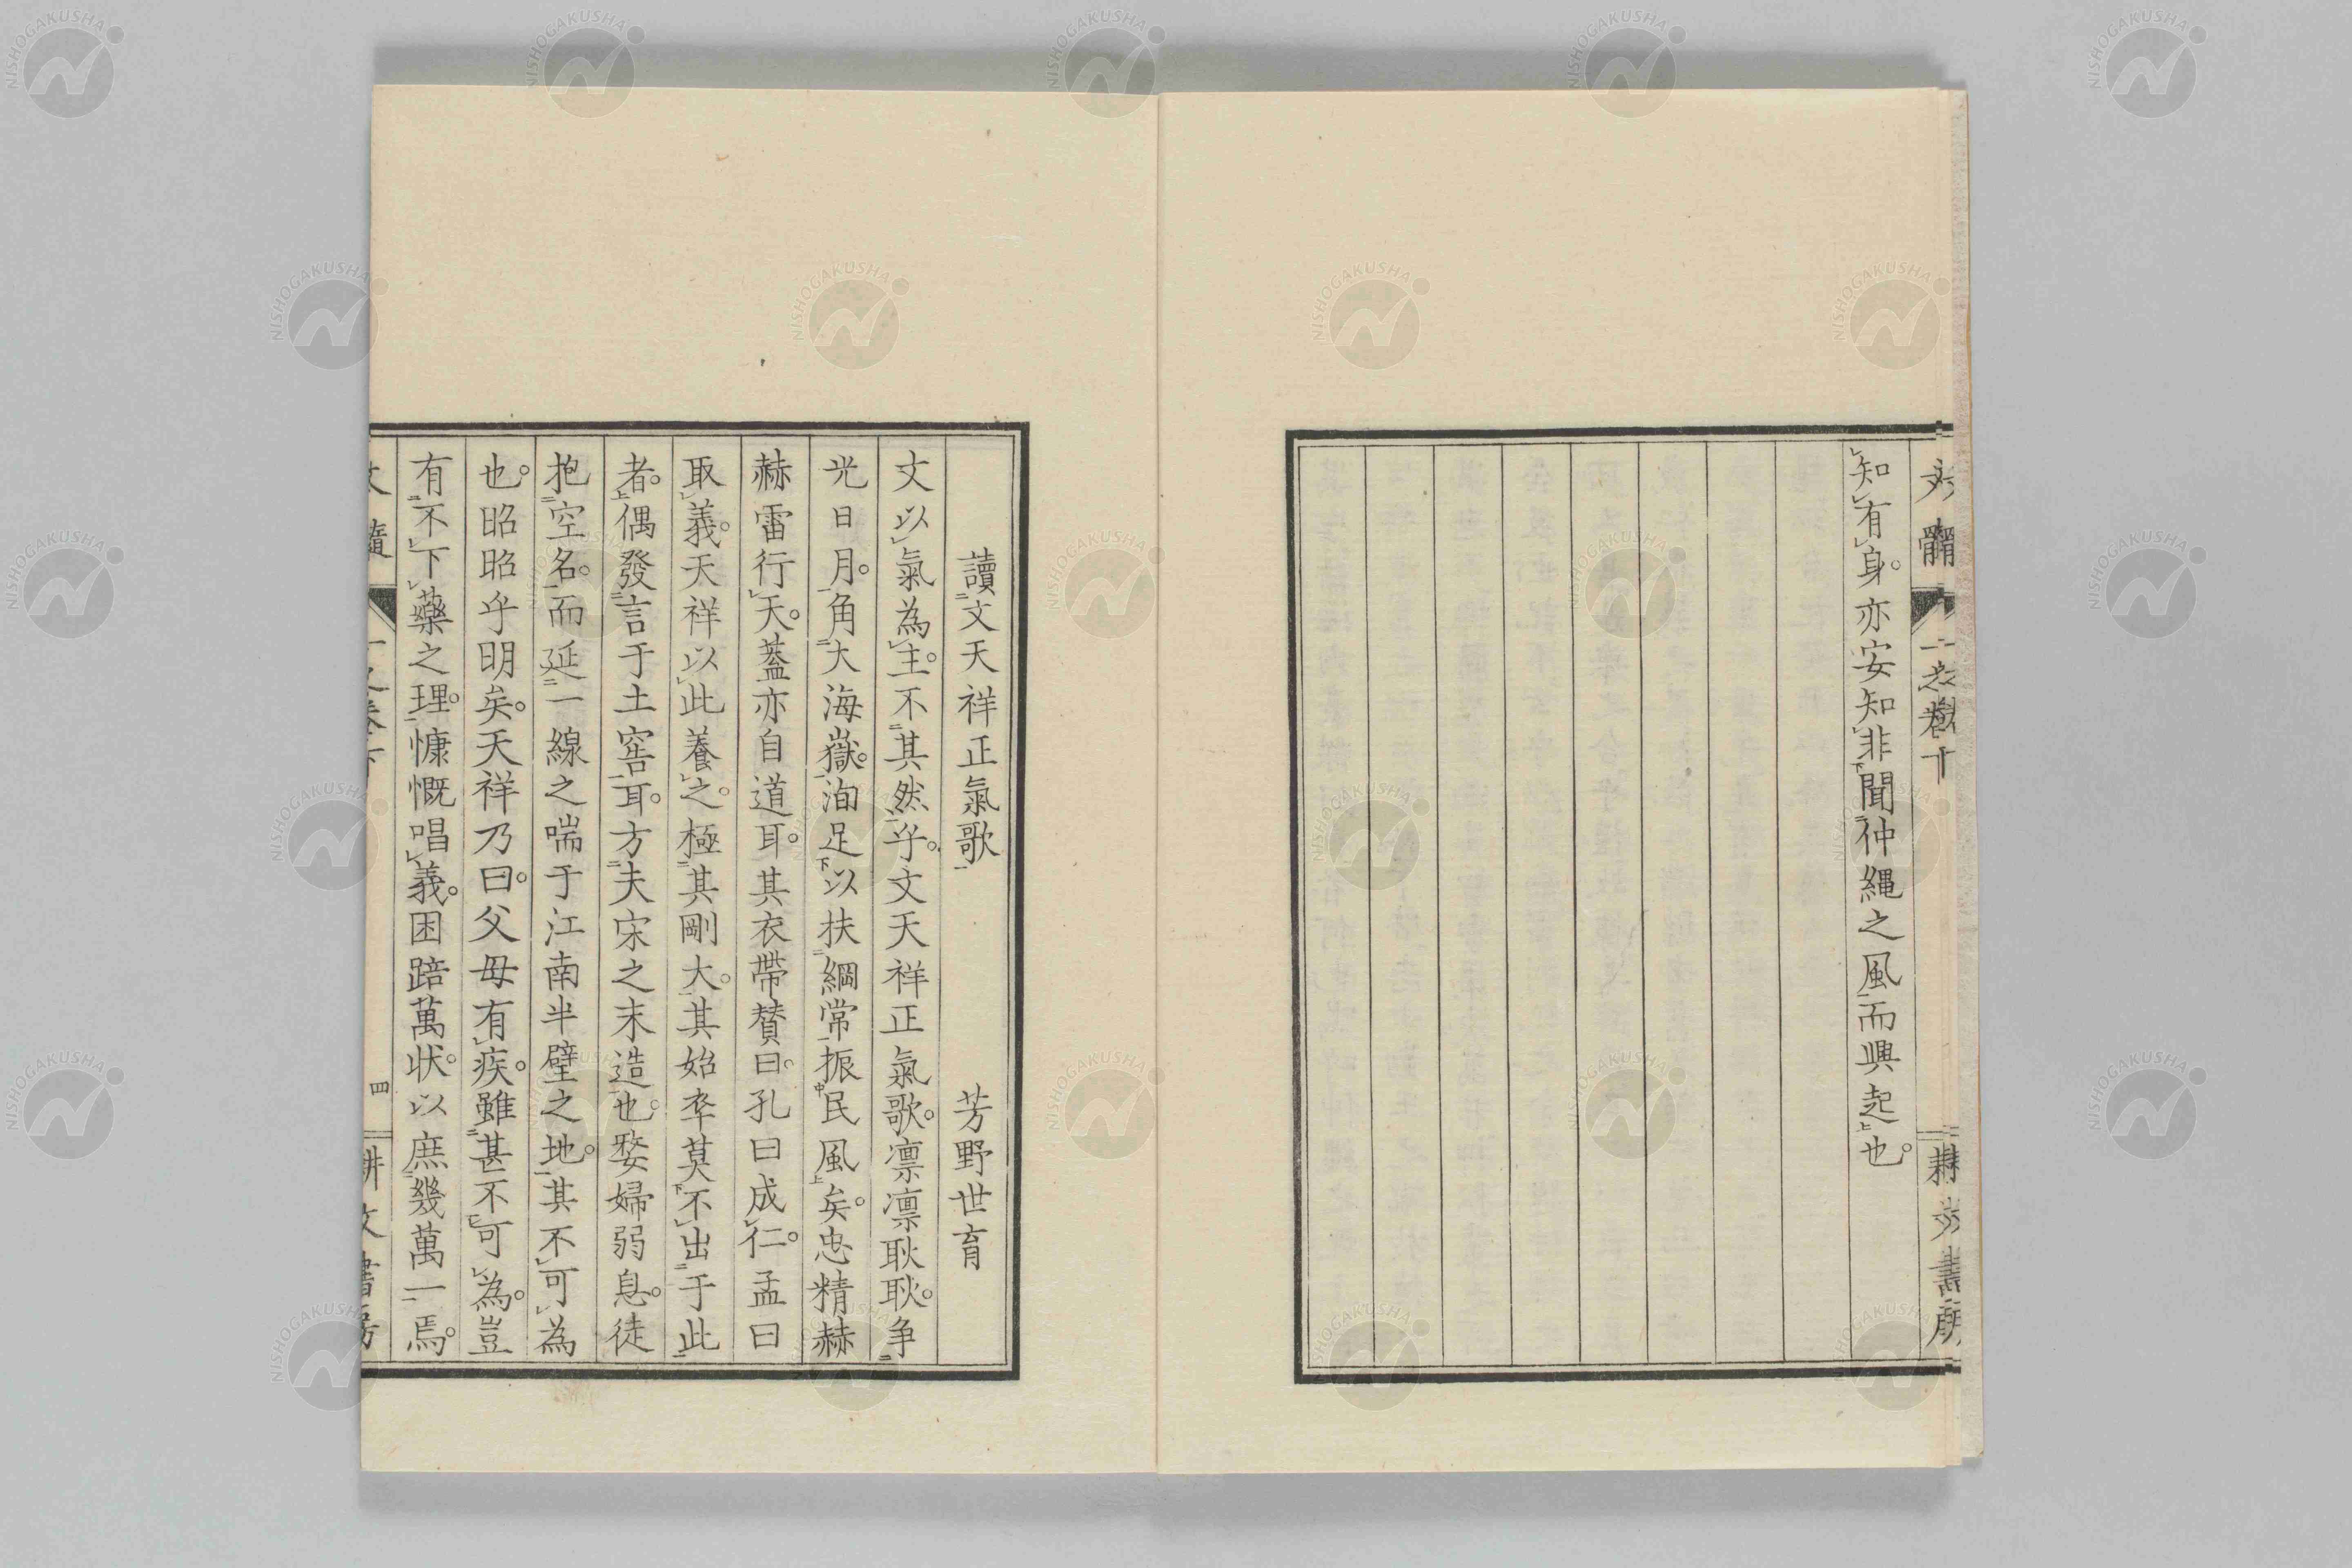 知有身。亦安知非聞仲縄之風而興起也。
讀文天祥正氣歌 芳野世育
文以氣為主。不其然乎。文天祥正氣歌。凛凛耿耿。争
光日月。角大海嶽。洵足以扶綱常振民風矣。忠精赫
赫雷行天。蓋亦自道耳。其衣帶賛曰。孔曰成仁。孟曰
取義。天祥以此養之。極其剛大。其始卒莫不出于此
者。偶發言于土窖耳。方夫宋之末造也。嫠婦弱息。徒
抱空名。而延一線之喘于江南半壁之地。其不可為
也。昭昭乎明矣。天祥乃曰。父母有疾。雖甚不可為。豈
有不下藥之理。慷慨唱義。困踣萬状。以庶幾萬一焉。
四
NISHOGAKUSHA